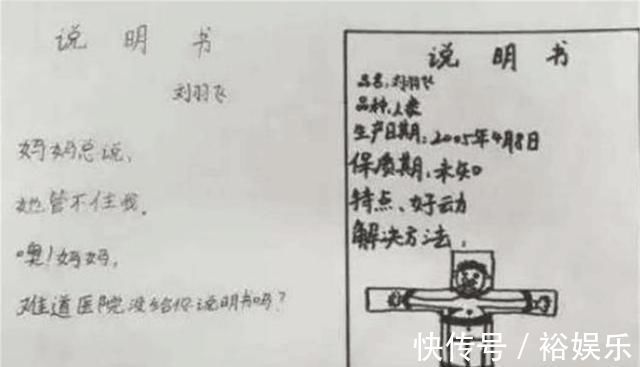 说明书
刘羽飞
妈妈总说，
她管不住我。
噢！妈妈，
难道医院没给你说明书吗？
说明书
品名：刘羽飞
品种：人类
生产日期：2005年4月8日
保质期：未知
特点、好动
解决方法：
快传号／裕娱乐